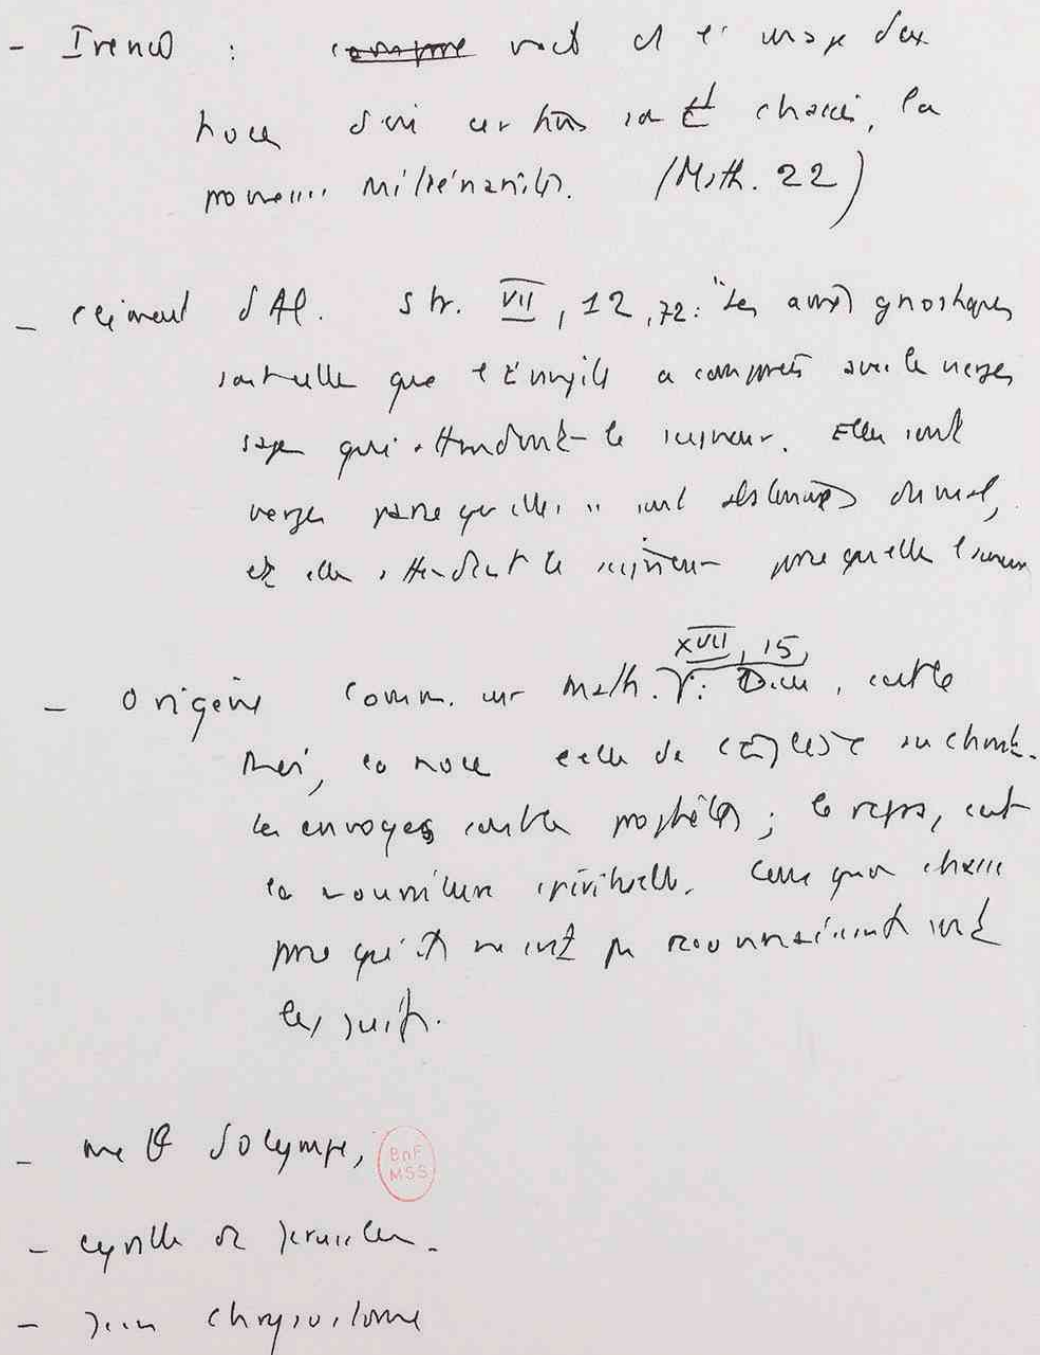 - Irénée : compare voit ds l'image des
noces d'où certains sont chassés, la
promesse millénariste. (Math. 22)
- Clément d'Al. Str. VII, 12, 72: "Les âmes gnostiques
sont celles que l'Évangile a comparées avec les vierges
sages qui attendent le seigneur. Elles sont
vierges parce qu'elles se sont abstenues du mal,
et elles attendent le seigneur parce qu'elles l'aiment
- Origène Comm. sur Math. XVII, 15, : Dieu, c'est le
Roi, la noce celle de l'Église au Christ.
les envoyés sont les prophètes; le repas, c'est
la nourriture spirituelle. Ceux qu'on chasse
parce qu'ils ne sont pas reconnaissants sont
les juifs.
- Méthode d'Olympe,
BnF
MSS
- Cyrille de Jérusalem.
- Jean Chrysostome